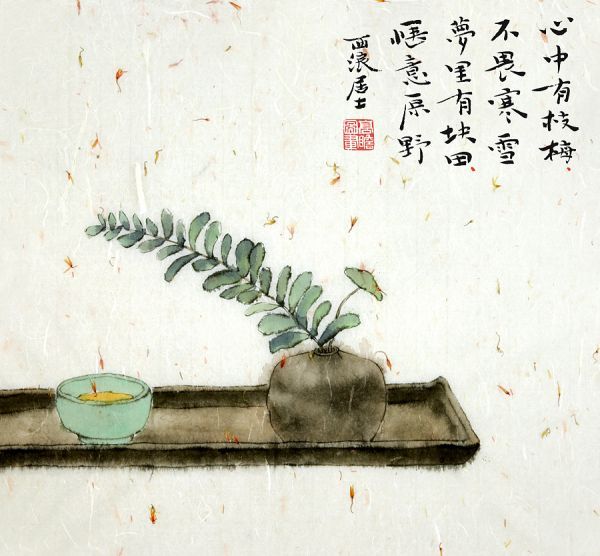 心中有枝梅
不畏寒雪
夢里有块田
愜意原野
西浪居士